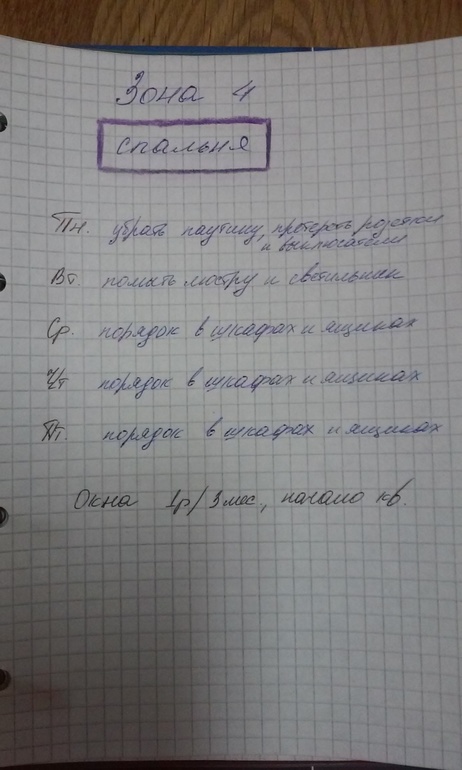 Зона 4
спальня
Пн. убрать паутину, протереть розетки
и выключатели
Вт. помыть люстру и светильник
Ср. порядок в шкафах и ящиках
Чт порядок в шкафах и ящиках
Пт. порядок в шкафах и ящиках
Окна 1р/3 мес., начало кв.